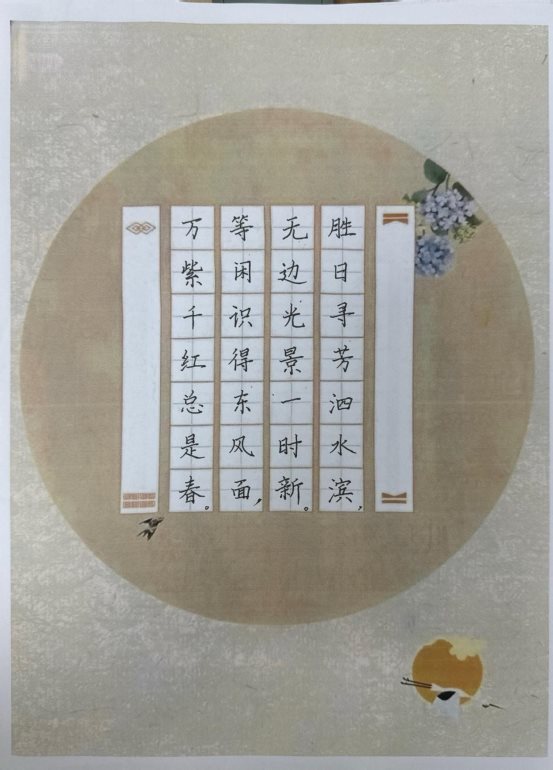 胜日寻芳泗水滨，
无边光景一时新。
等闲识得东风面，
万紫千红总是春。